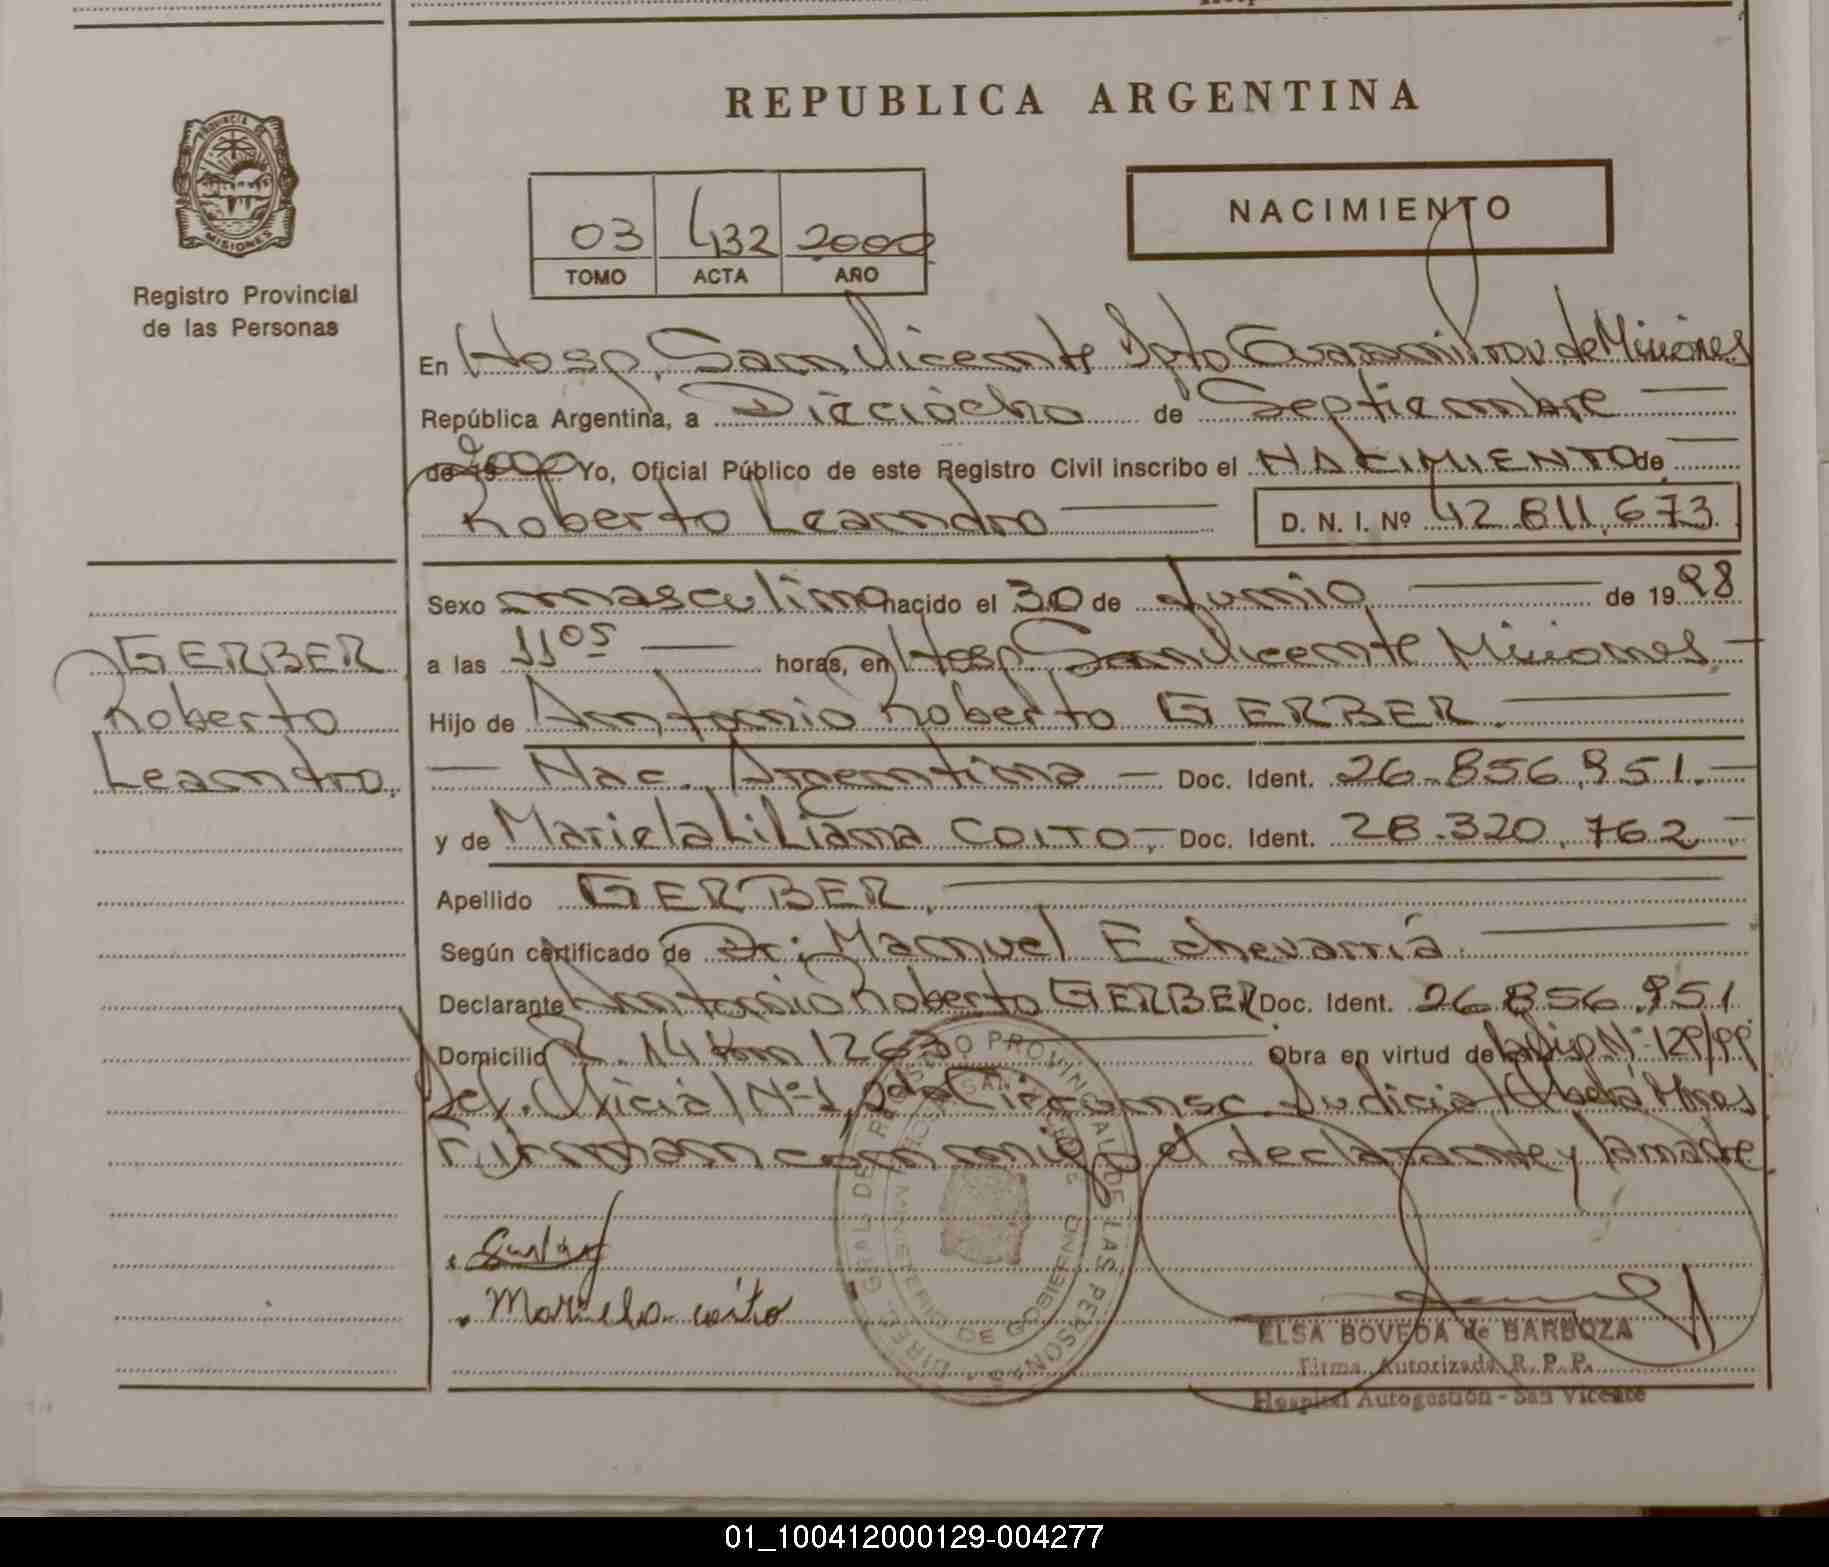 REPUBLICA ARGENTINA
PROVINCIA DE
MISIONES
Registro Provincial
de las Personas
03 432 2000
TOMO ACTA AÑO
NACIMIENTO
En Hosp. San Vicente Dpto Guaraní Prov. de Misiones
República Argentina, a Dieciocho de Septiembre
de 19 2000 Yo, Oficial Público de este Registro Civil inscribo el NACIMIENTO de
Roberto Leandro D. N. I. Nº 42.811.673
Sexo masculino nacido el 30 de Junio de 1998
GERBER
Roberto
Leandro.
a las 11 05 horas, en Hosp. San Vicente Misiones.
Hijo de Antonio Roberto GERBER.
Nac. Argentina Doc. Ident. 26.856.951.
y de Mariela Liliana COITO, Doc. Ident. 28.320.762
Apellido GERBER.
Según certificado de Dr: Manuel Echevarría.
Declarante Antonio Roberto GERBER Doc. Ident. 26.856.951
Domicilio R. 14 Km 1263 Obra en virtud de Nº 129/99
Def. Oficial Nº 1, 2da Circunsc. Judicial Oberá Mnes
Firman conmigo el declarante y la madre
Mariela coito
DIREC. GRAL. DEL REGISTRO PROVINCIAL DE LAS PERSONAS
MINISTERIO DE GOBIERNO
ELSA BOVEDA de BARBOZA
Firma Autorizada R. P. P.
Hospital Autogestión - San Vicente
01_100412000129-004277